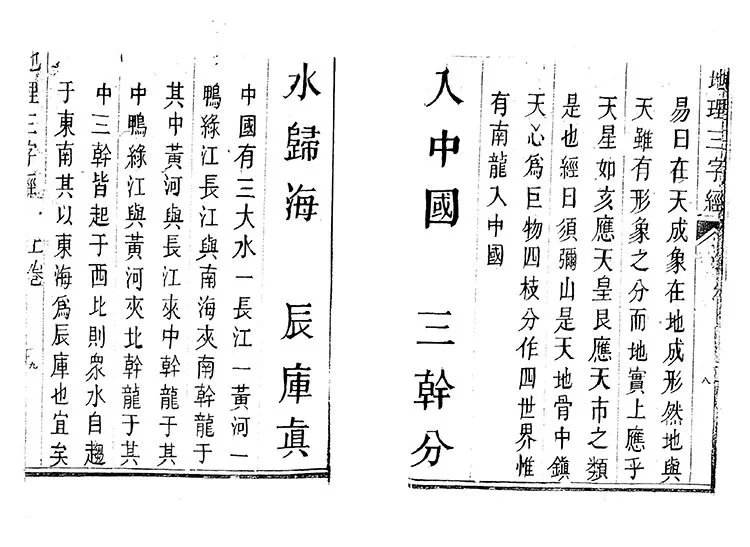 地理三字經
八
易曰在天成象在地成形然地與
天雖有形象之分而地實上應乎
天星如亥應天皇艮應天市之類
是也經曰須彌山是天地骨中鎮
天心爲巨物四枝分作四世界惟
有南龍入中國
入中國 三幹分
水歸海 辰庫眞
中國有三大水一長江一黃河一
鴨綠江長江與南海夾南幹龍于
其中黃河與長江夾中幹龍于其
中鴨綠江與黃河夾北幹龍于其
中三幹皆起于西北則衆水自趨
于東南其以東海爲辰庫也宜矣
地理三字經 上卷 九